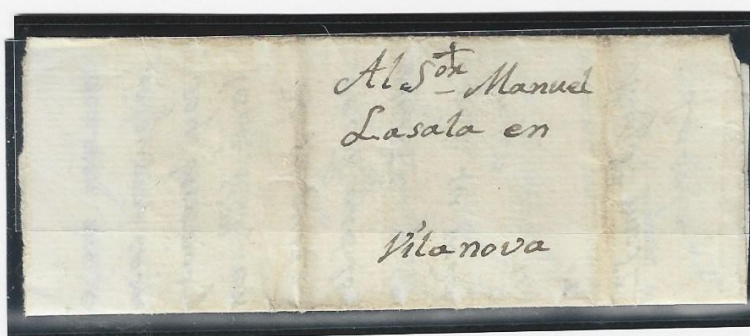 Al Sor Manuel
Lasala en
Vilanova